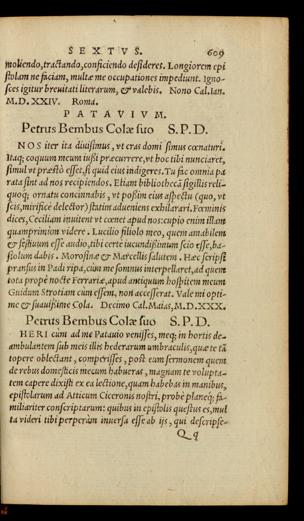 SEXTVS. 609
moliendo, tractando, conficiendo desideres. Longiorem epi
stolam ne faciam, multæ me occupationes impediunt. Igno-
sces igitur breuitati literarum, & valebis. Nono Cal. Ian.
M.D.XXIV. Roma.
PATAVIVM.
Petrus Bembus Colæ suo S. P. D.
NOS iter ita diuisimus, vt cras domi simus cœnaturi.
Itaq; coquum meum iussi præcurrere, vt hoc tibi nunciaret,
simul vt præstò esset, si quid eius indigeres. Tu fac omnia pa
rata sint ad nos recipiendos. Etiam bibliothecã sigillis reli-
quoq; ornatu concinnabis, vt possim eius aspectu (quo, vt
scis, mirificè delector) statim adueniens exhilarari. Ferminis
dices, Ceciliam inuitent vt cœnet apud nos: cupio enim illam
quamprimùm videre. Lucilio filiolo meo, quem amabilem
& festiuum esse audio, tibi certè iucundissimum scio esse, ba-
siolum dabis. Morosinæ & Marcellis salutem. Hæc scripsi
pransus in Padi ripa, cùm me somnus interpellaret, ad quem
tota propè nocte Ferrariæ, apud antiquum hospitem meum
Guidum Strotium cùm essem, non accesserat. Vale mi opti-
me & suauissime Cola. Decimo Cal. Maias, M.D.XXX.
Petrus Bembus Colæ suo S. P. D.
HERI cùm ad me Patauio venisses, meq; in hortis de-
ambulantem sub meis illis hederarum umbraculis, quæ te tã
topere oblectant, comperisses, post eam sermonem quem
de rebus domesticis mecum habueras, magnam te volupta-
tem capere dixisti ex ea lectione, quam habebas in manibus,
epistolarum ad Atticum Ciceronis nostri, probè planeq; fa-
miliariter conscriptarum: quibus in epistolis questus es, mul
ta videri tibi perperàm inuersa esse ab ijs, qui descripse-
Q q